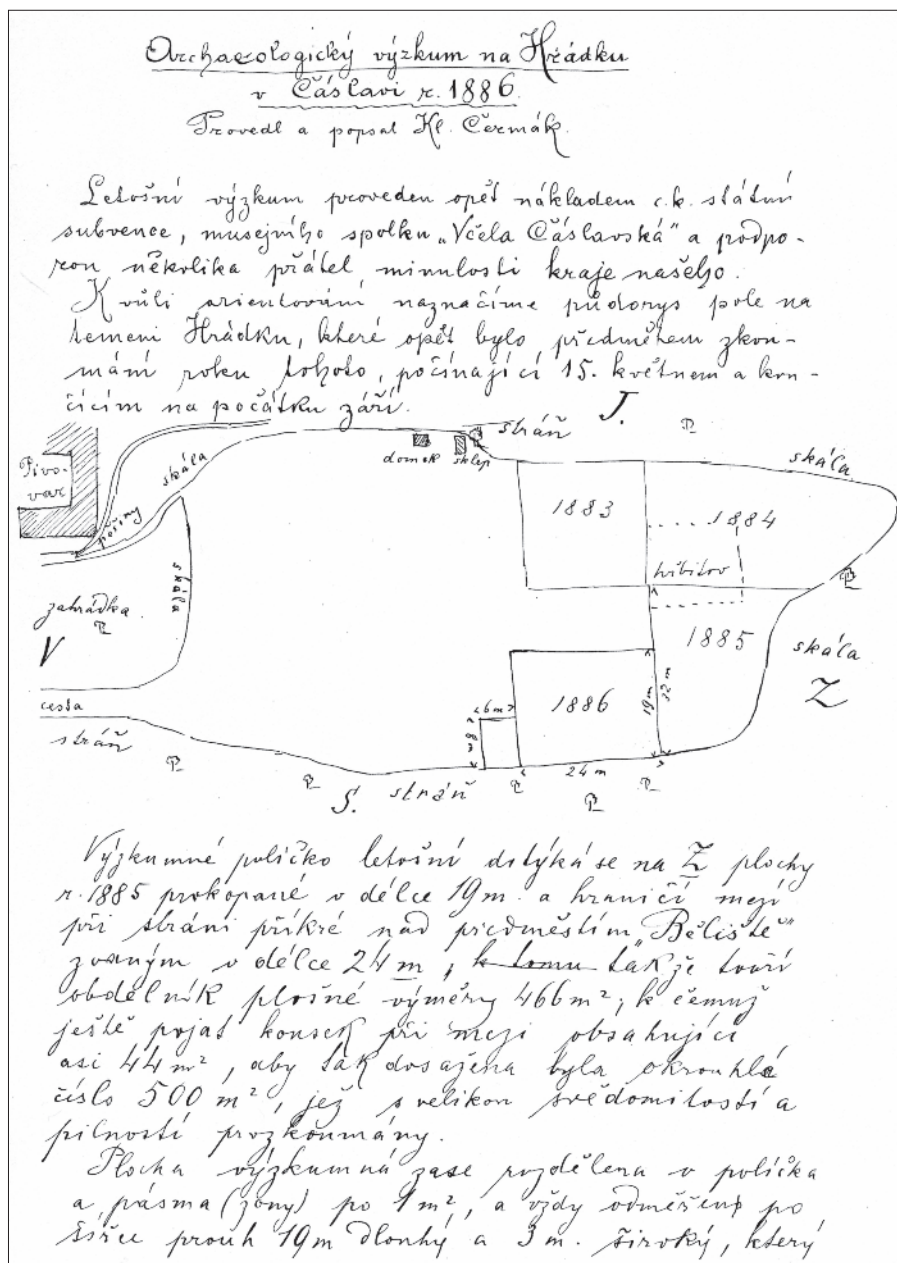 Archaeologický výzkum na Hrádku
v Čáslavi r. 1886.
Provedl a popsal Kl. Čermák.
Letošní výzkum proveden opět nákladem c.k. státní
subvence, musejního spolku „Včela Čáslavská" a podpo-
rou několika přátel minulosti kraje našeho.
Kvůli orientování naznačíme půdorys pole na
temeni Hrádku, které opět bylo předmětem zkou-
mání roku tohoto, počínající 15. květnem a kon-
čícím na počátku září.
J.
stráň
Pivo-
var
skála
domek
sklep
skála
pěšiny
1883
1884
skála
hřbitov
zahrádka
V
1885
skála
Z
cesta
6m
8m
1886
19m
32m
stráň
24 m
S.
stráň
Výzkumné políčko letošní dotýká se na Z plochy
r. 1885 prokopané v délce 19m. a hraničí mezí
při stráni příkré nad předměstím „Běliště"
zvaným v délce 24 m, k tomu takže tvoří
obdélník plošné výměry 466m², k čemuž
ještě pojat kousek při mezi obsahující
asi 44 m², aby tak dosažena byla okrouhlé
číslo 500 m², jež s velikou svědomitostí a
pilností prozkoumány.
Plocha výzkumná zase rozdělena v políčka
a pásma (zony) po 1 m², a vždy odměřeno po
šířce prouh 19m dlouhý a 3 m. široký, který